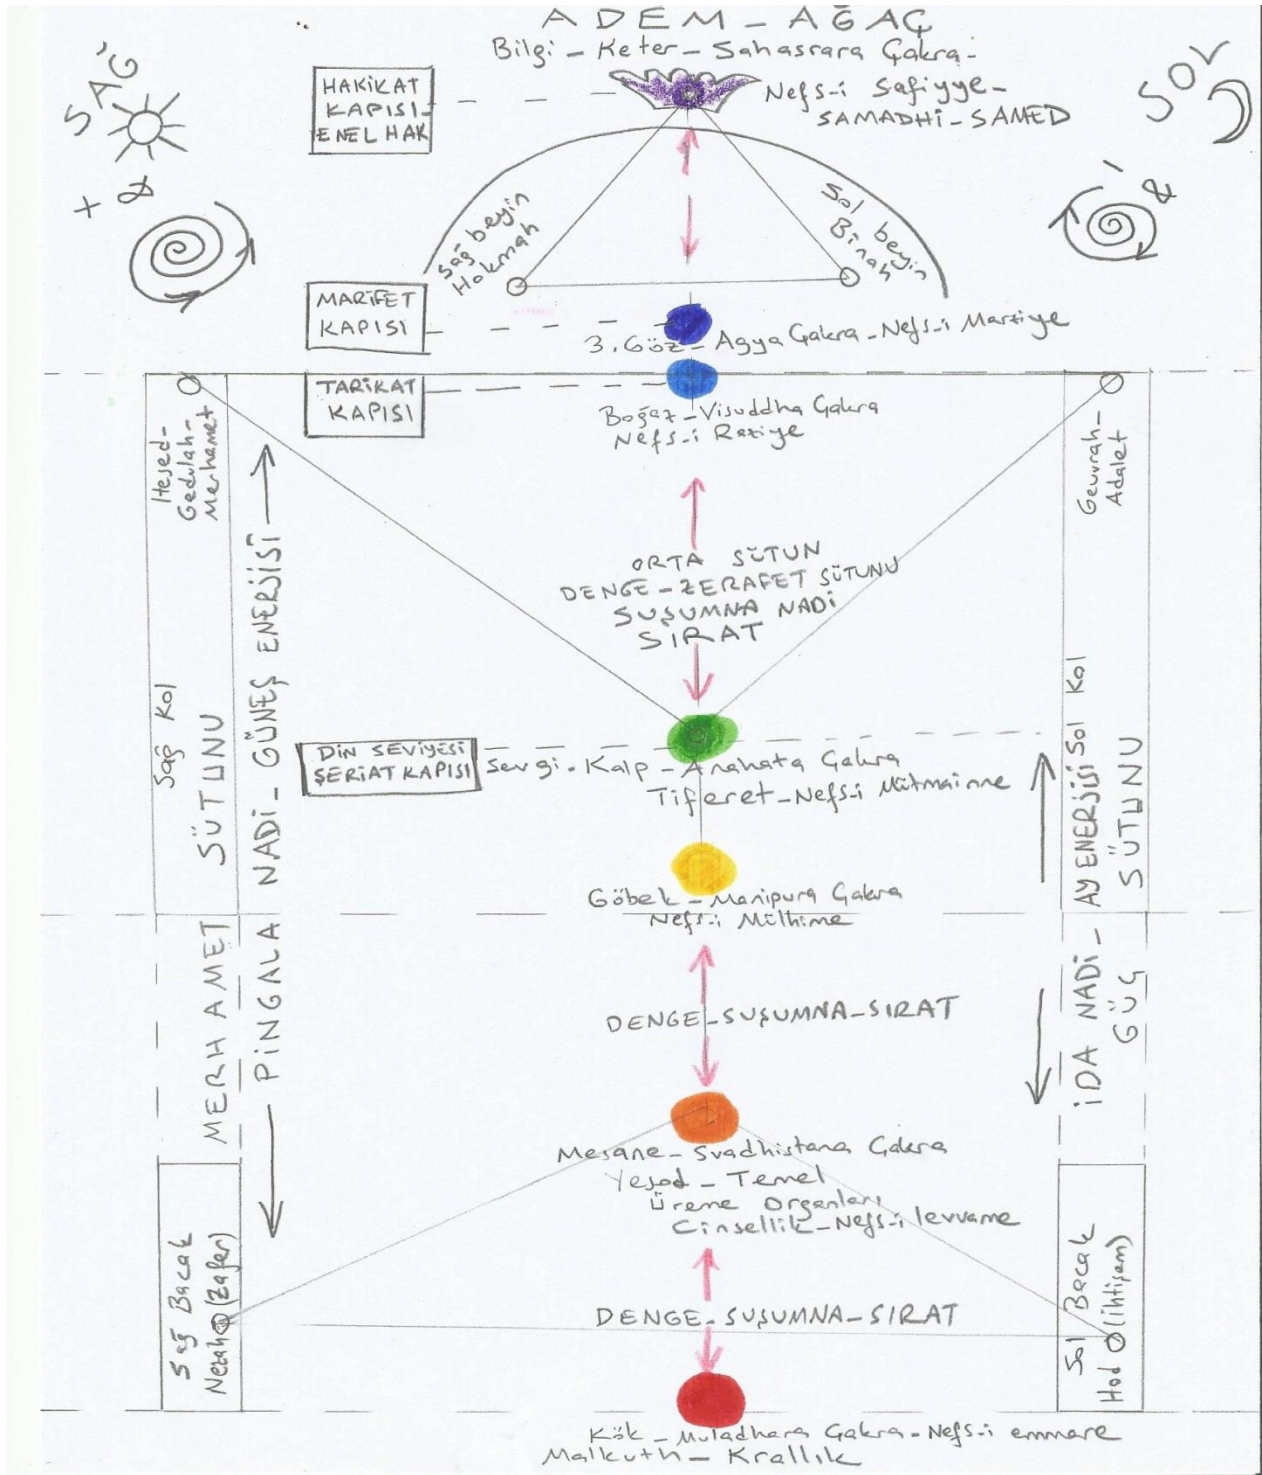 ADEM - AĞAÇ
Bilgi - Keter - Sahasrara Çakra -
Nefs-i Safiyye -
SAMADHİ - SAMED
SAĞ
SOL
HAKİKAT
KAPISI -
ENEL HAK
+ &
- &
Sağ beyin
Hokmah
Sol beyin
Binah
MARİFET
KAPISI
3. Göz - Agya Çakra - Nefs-i Marziye
TARİKAT
KAPISI
Boğaz - Visuddha Çakra
Nefs-i Raziye
Hesed -
Gedulah -
Merhamet
Gevurah -
Adalet
ORTA SÜTUN
DENGE - ZERAFET SÜTUNU
SUŞUMNA NADİ
SIRAT
Sağ Kol
MERHAMET SÜTUNU
PİNGALA NADİ - GÜNEŞ ENERJİSİ
Sol Kol
İDA NADİ - AY ENERJİSİ
GÜÇ SÜTUNU
DİN SEVİYESİ
ŞERİAT KAPISI
Sevgi - Kalp - Anahata Çakra
Tiferet - Nefs-i Mütmainne
Göbek - Manipura Çakra
Nefs-i Mülhime
DENGE - SUŞUMNA - SIRAT
Mesane - Svadhistana Çakra
Yesod - Temel
Üreme Organları
Cinsellik - Nefs-i levvame
Sağ Bacak
Nezah (Zafer)
Sol Bacak
Hod (ihtişam)
DENGE - SUŞUMNA - SIRAT
Kök - Muladhara Çakra - Nefs-i emmare
Malkuth - Krallık